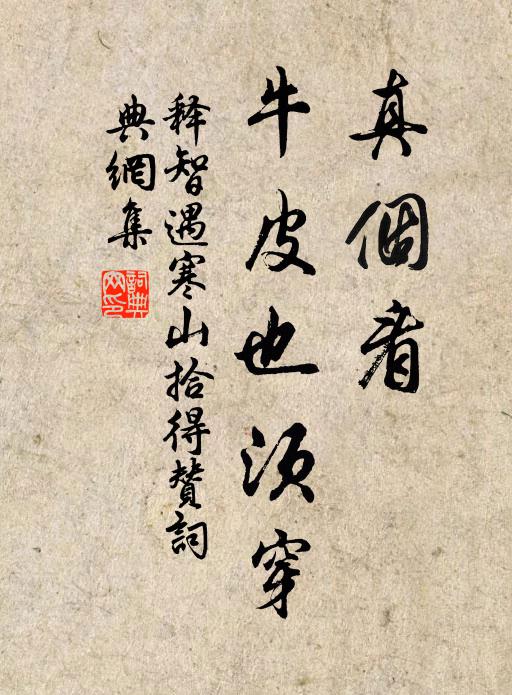 真個看
牛皮也须穿
释智遇寒山拾得賛詞
典網集
詞典网印